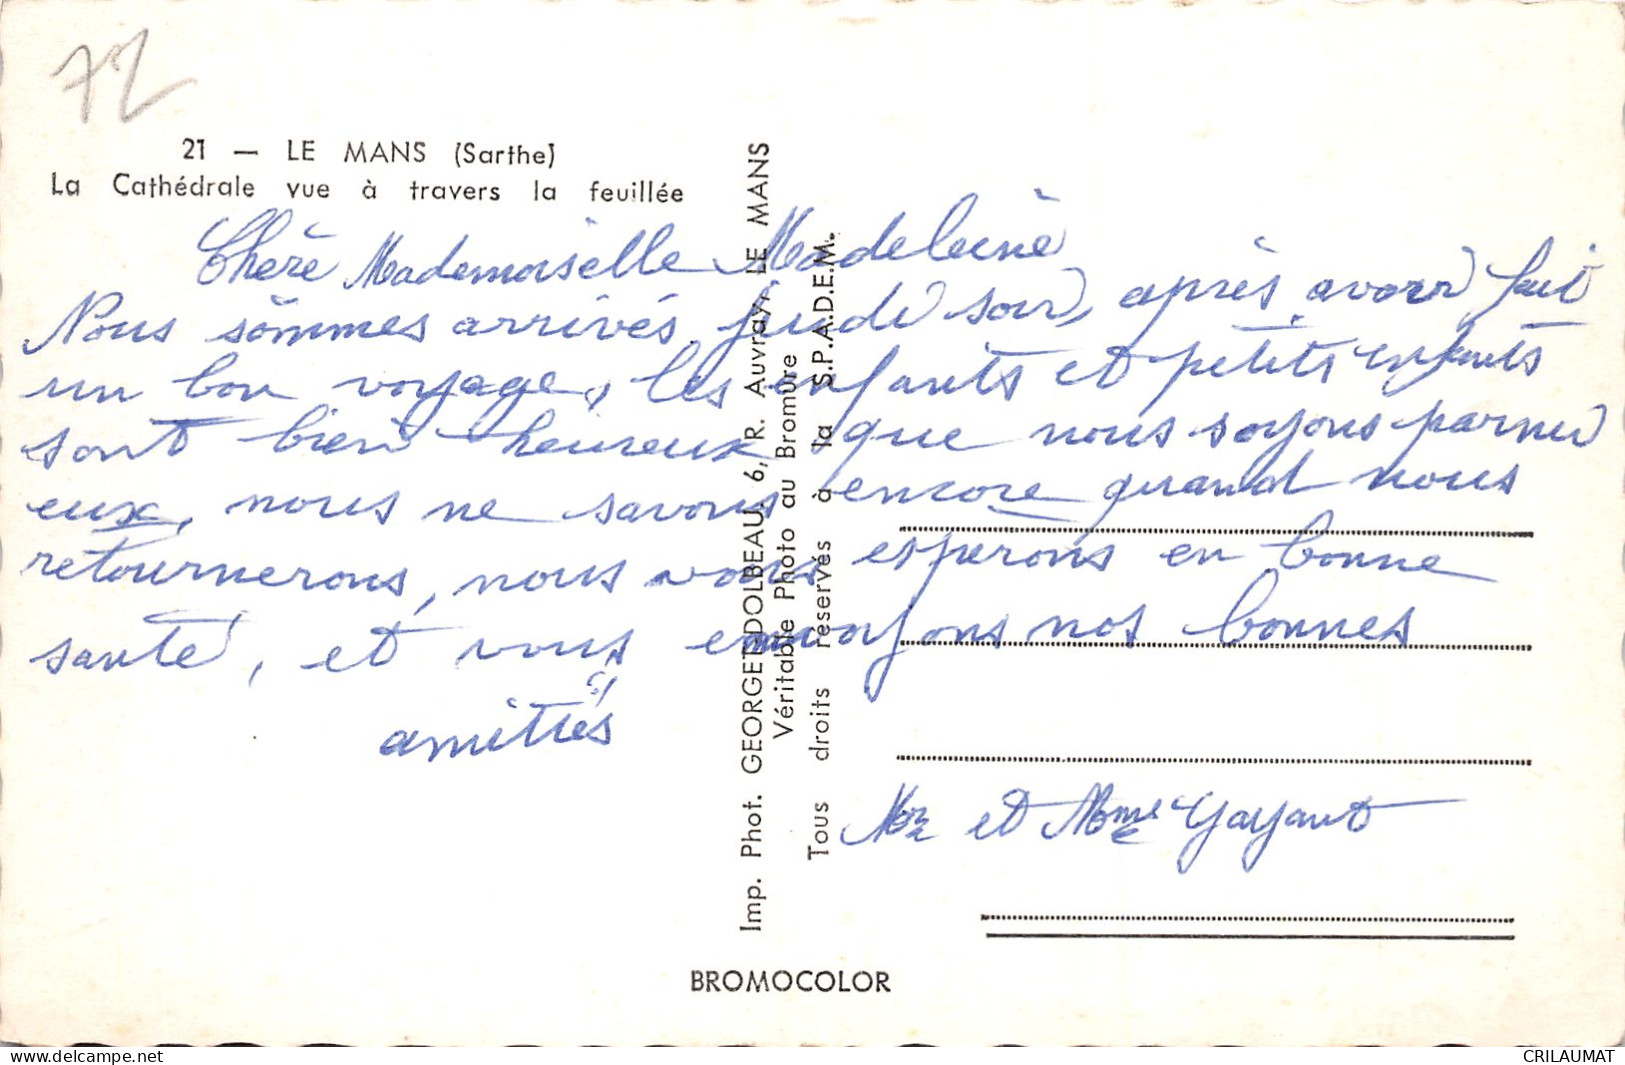 72
21 — LE MANS (Sarthe)
La Cathédrale vue à travers la feuillée
Chère Mademoiselle Madeleine
Nous sommes arrivés jeudi soir, après avoir fait
un bon voyage, les enfants et petits enfants
sont bien heureux que nous soyons parmi
eux, nous ne savons encore quand nous
retournerons, nous vous esperons en bonne
santé, et vous envoyons nos bonnes
amitiés
Mr et Mme
Imp. Phot. GEORGET-DOLBEAU, 6, R. Auvray, LE MANS
Véritable Photo au Bromure
Tous droits réservés à la S.P.A.D.E.M.
BROMOCOLOR
www.delcampe.net
CRILAUMAT